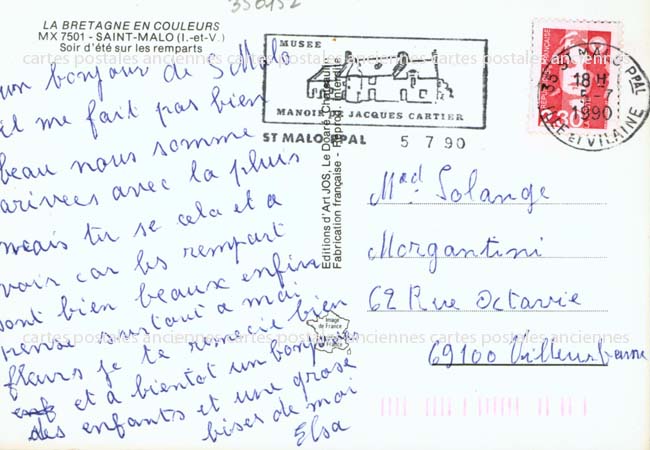 350152
LA BRETAGNE EN COULEURS
MX 7501 - SAINT-MALO (I.-et-V.)
Soir d'été sur les remparts
un bonjour de S Malo
il me fait pas bien
beau nous somme
arivees avec la pluis
mais tu se cela et a
voir car les rempart
sont bien beaux enfin
surtout a moi
fleurs je te remecie bien
et a bientot un bonjour
des enfants et une grose
bises de moi
Elsa
MUSEE
MANOIR DE JACQUES CARTIER
ST MALO PPAL 5 7 90
35 ST MALO PPAL
18 H
5-7
1990
ILLE ET VILAINE
Editions d'Art JOS, Le Doaré, Châteaulin
Fabrication française - Reprod. interd.
Image
de France
Mad Solange
Morgantini
62 Rue Octavie
69100 Villeurbanne
cartes postales anciennes cartes postales anciennes cartes postales anciennes
cartes postales anciennes cartes postales anciennes cartes postales anciennes